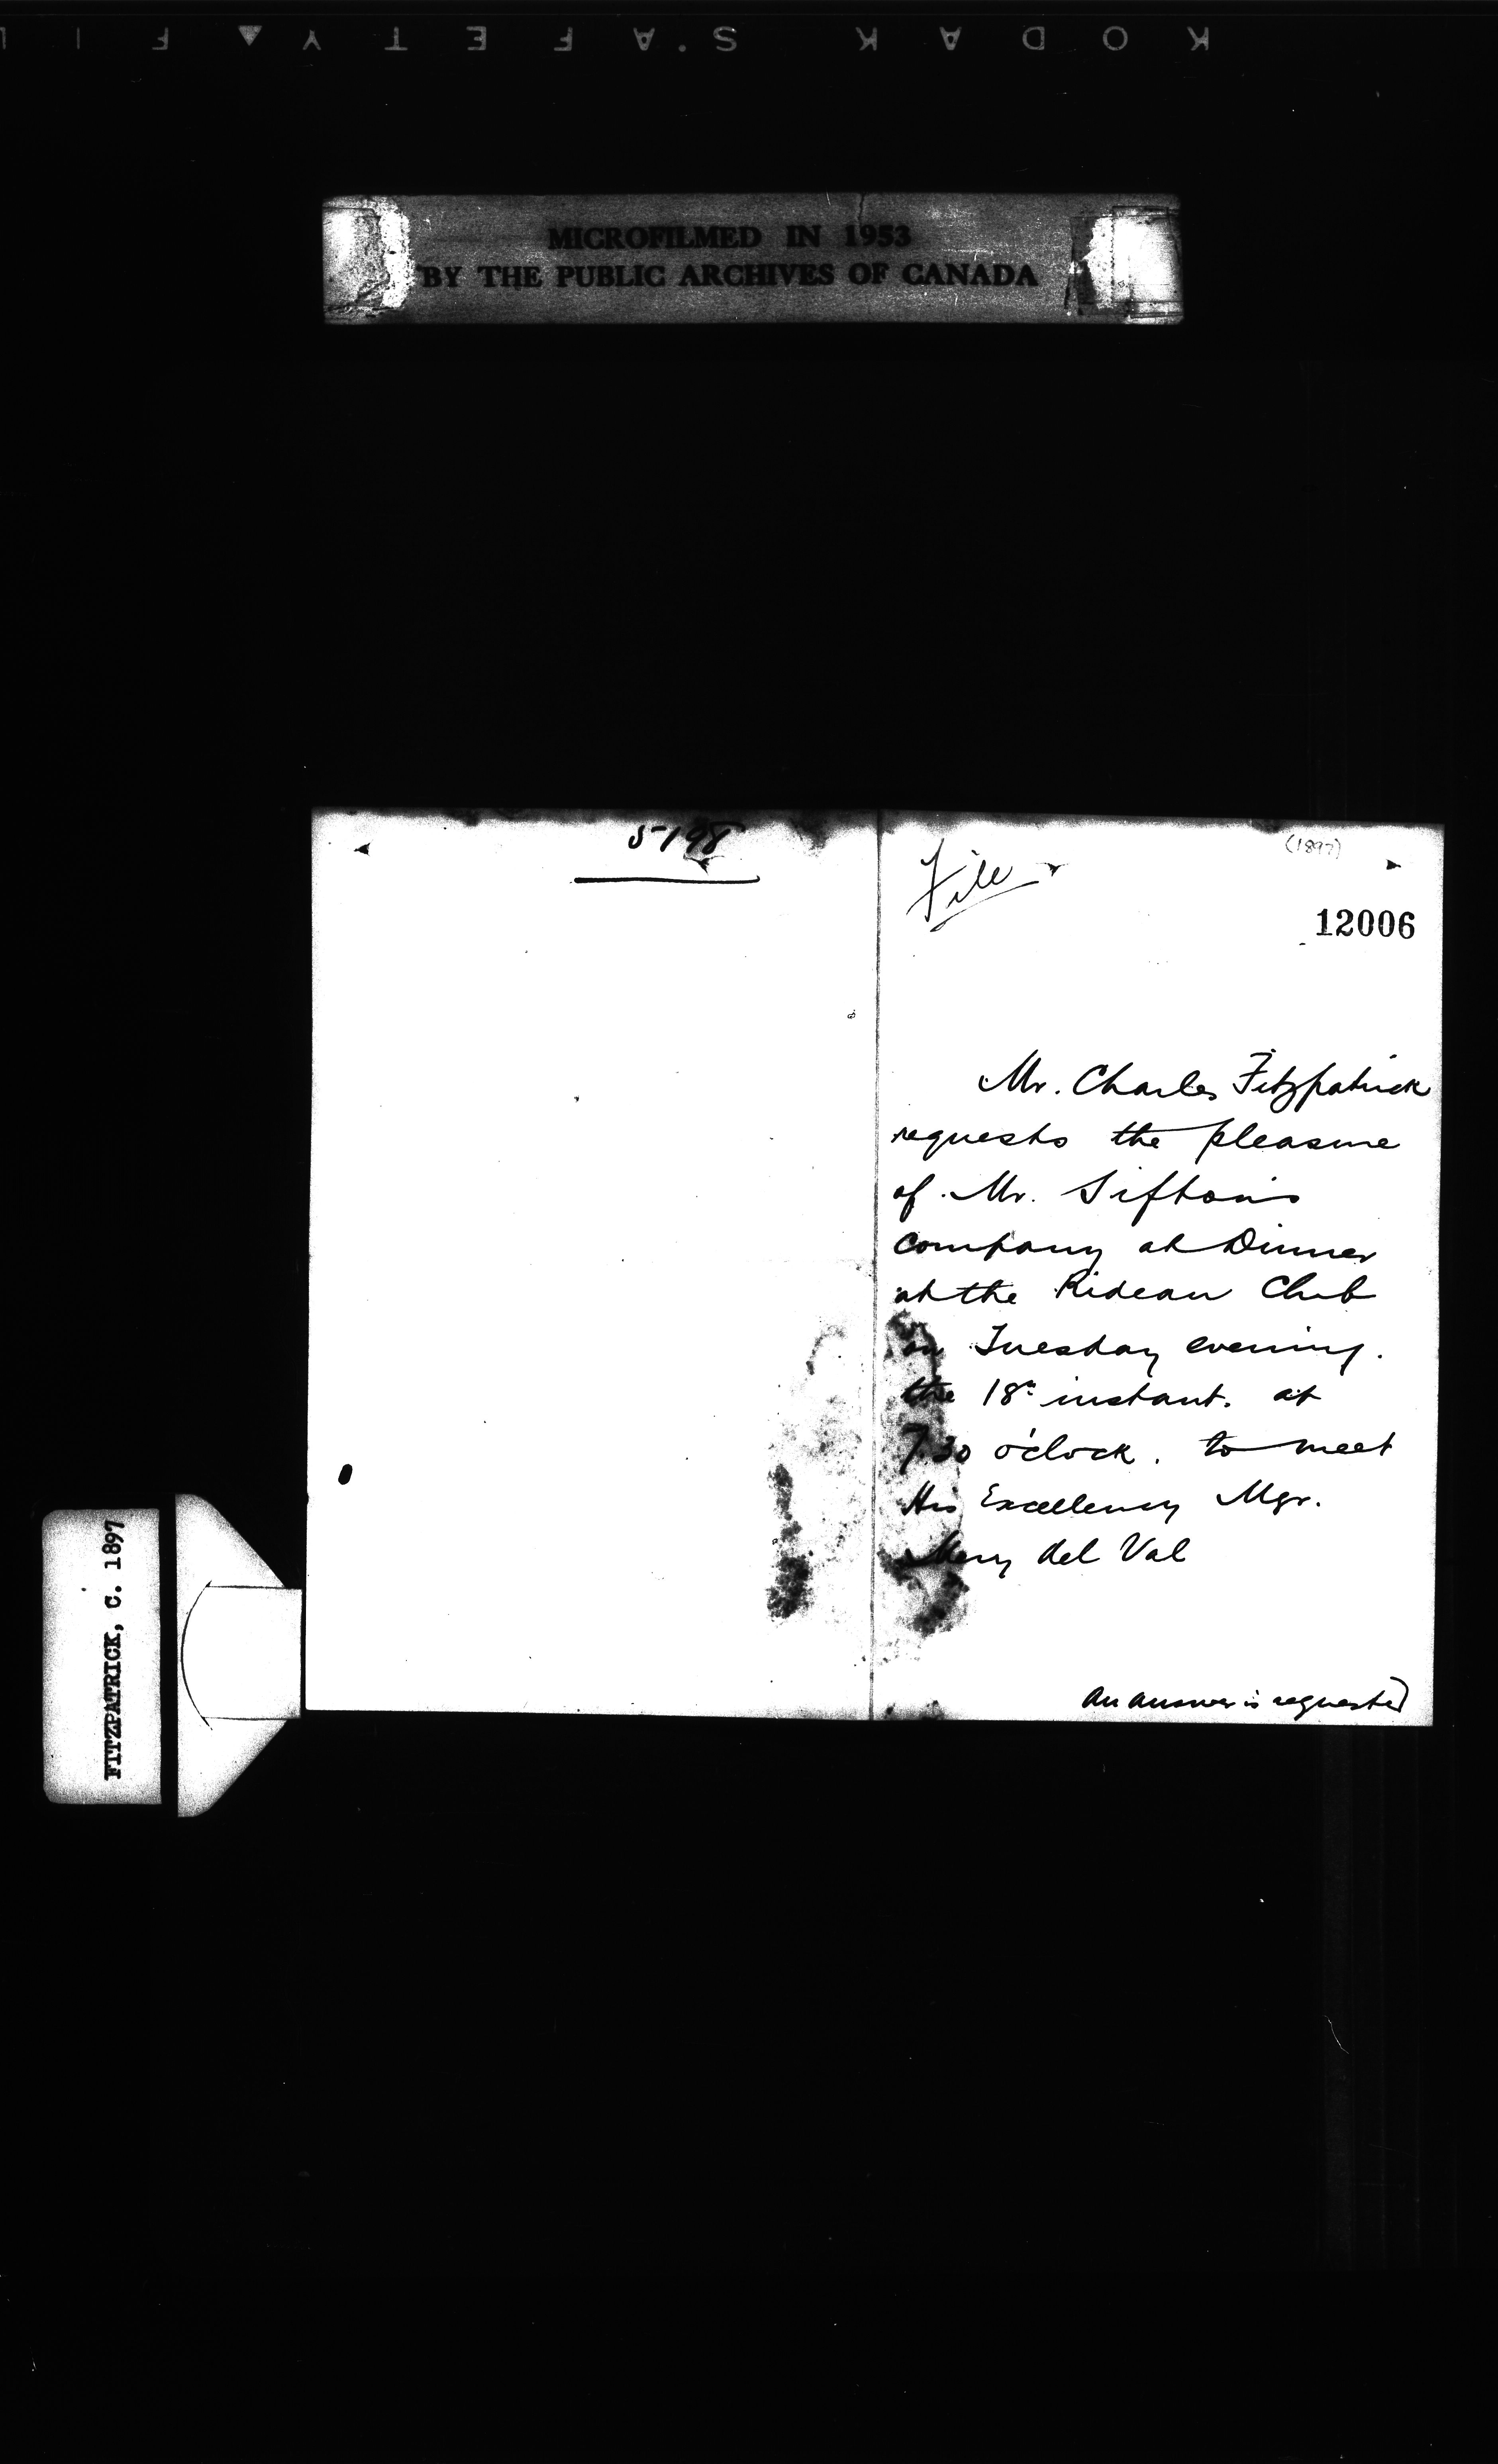 KODAK SAFETY FIL
MICROFILMED IN 1953
BY THE PUBLIC ARCHIVES OF CANADA
5198
File
(1897)
12006
Mr. Charles Fitzpatrick
requests the pleasure
of Mr. Sifton's
company at Dinner
at the Rideau Club
on Tuesday evening.
the 18th instant. at
7.30 o'clock. to meet
His Excellency Mgr.
Mery del Val
An answer is requested
FITZPATRICK, C. 1897